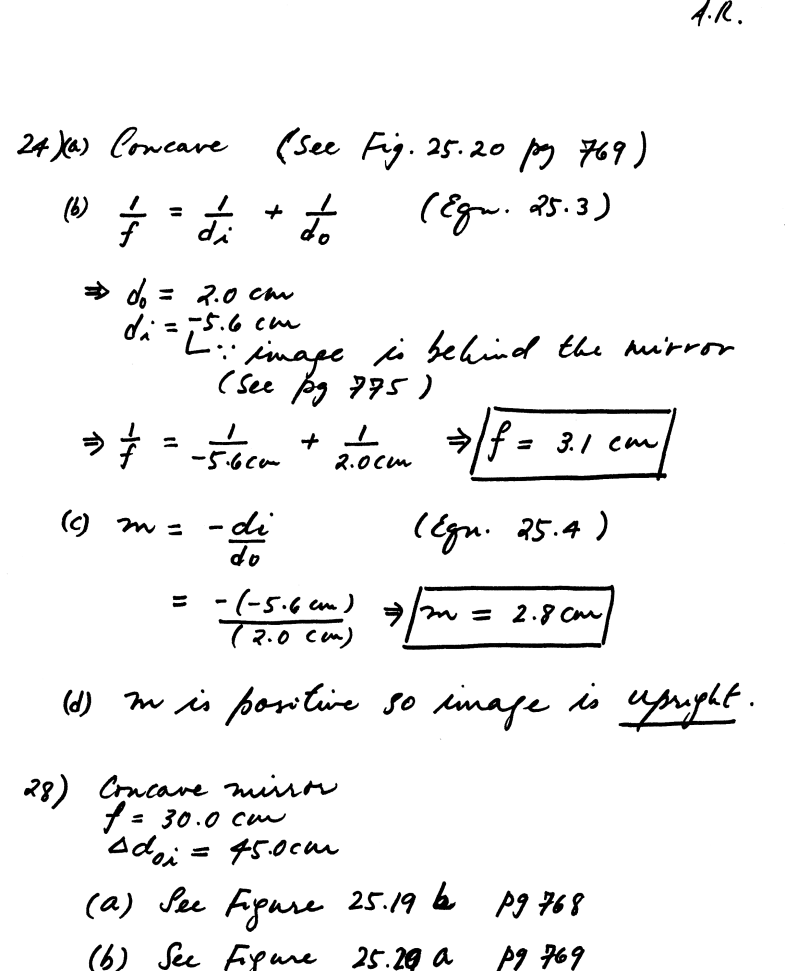 A.R.
24)(a) Concave (See Fig. 25.20 pg 769)
(b) 1/f = 1/di + 1/do (Eqn. 25.3)
⇒ do = 2.0 cm
di = -5.6 cm
∵ image is behind the mirror
(See pg 775)
⇒ 1/f = 1/-5.6cm + 1/2.0cm ⇒ f = 3.1 cm
(c) m = -di/do (Eqn. 25.4)
= -(-5.6 cm)/(2.0 cm) ⇒ m = 2.8 cm
(d) m is positive so image is upright.
28) Concave mirror
f = 30.0 cm
Δdoi = 45.0cm
(a) See Figure 25.19 b pg 768
(b) See Figure 25.20 a pg 769